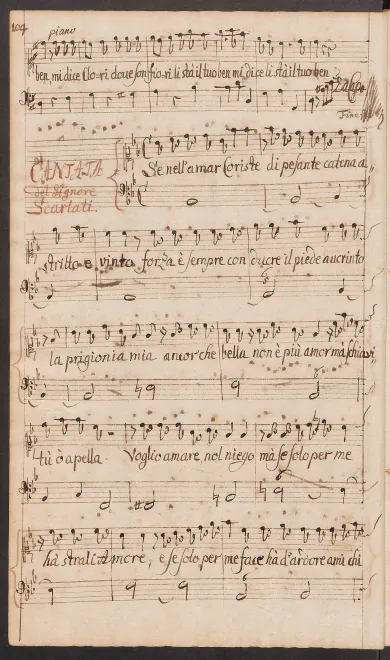 104
piano
ben, mi dice Clo=ri doue son fio=ri li stà il tuo ben mi dice li stà il tuo ben
Da Capo
Fine
CANTATA
del Signore
Scarlati.
Se nell'amar Coriste di pesante catena a
stritto e vinto forza è sempre con ducre il piede aucrinto
la prigionia mia ancor che bella non è più amor mà schiavi
tù ò apella Voglio amare, nol niego mà se solo per me
hà strali Amore, e se solo per me face hà d'ardore ami chi